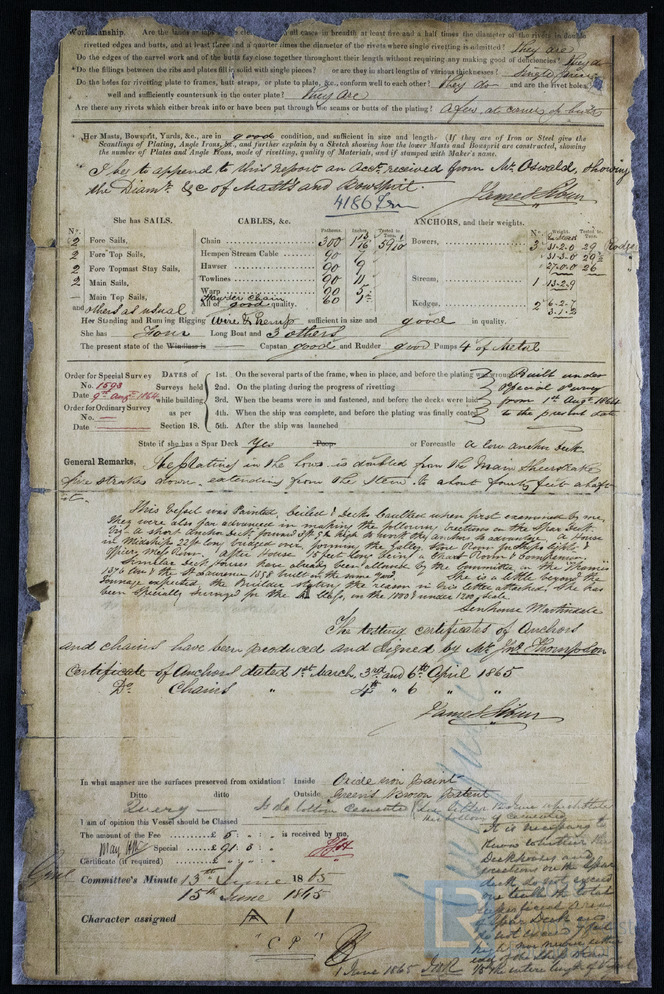 Workmanship. Are the lands or laps all cases in breadth at least five and a half times the diameter of the rivets in double
rivetted edges and butts, and at least three and a quarter times the diameter of the rivets where single rivetting is admitted? They are
Do the edges of the carvel work and of the butts lay close together throughout their length without requiring any making good of deficiencies? They do
Do the fillings between the ribs and plates fill in solid with single pieces? or are they in short lengths of various thicknesses? Single pieces
Do the holes for rivetting plate to frames, butt straps, or plate to plate, &c., conform well to each other? They do and are the rivet holes
well and sufficiently countersunk in the outer plate? They are
Are there any rivets which either break into or have been put through the seams or butts of the plating? A few, at carvel butts
Her Masts, Bowsprit, Yards, &c., are in good condition, and sufficient in size and length. (If they are of Iron or Steel give the
Scantlings of Plating, Angle Irons, &c., and further explain by a Sketch showing how the lower Masts and Bowsprit are constructed, showing
the number of Plates and Angle Irons, mode of rivetting, quality of Materials, and if stamped with Maker's name.
I beg to append to this report an Acct. received from Mr. Oswald, showing
the Diamr. &c of Masts and Bowsprit.
4186 Irn
She has SAILS. CABLES, &c. ANCHORS, and their weights.
No.
2 Fore Sails,
2 Fore Top Sails,
2 Fore Topmast Stay Sails,
2 Main Sails,
— Main Top Sails,
and others as usual
Fathoms. Inches.
Chain 300
Hempen Stream Cable 90 9
Hawser 90 9
Towlines 90 11
Warp 90 5
Hawser Chain 60 1
All of good quality.
No. Weight.
Bowers, 3 31.2.0 29
31.3.0 29
27.0.0 26
Stream, 1 13.2.9
Kedges, 2 6.2.7
3.1.2
Her Standing and Running Rigging Wire & Hemp sufficient in size and good in quality.
She has Four Long Boat and 3 others
The present state of the Windlass is Capstan good and Rudder good Pumps 4 of Metal
Order for Special Survey
No. 1593
Date 9th Augt. 1864
Order for Ordinary Survey
No. —
Date —
DATES of
Surveys held
while building
as per
Section 18.
1st. On the several parts of the frame, when in place, and before the plating was
2nd. On the plating during the progress of rivetting
3rd. When the beams were in and fastened, and before the decks were laid
4th. When the ship was complete, and before the plating was finally coated
5th. After the ship was launched
Built under
Special Survey
from 1st Augt. 1864
to the present date
State if she has a Spar Deck Yes Poop or Forecastle a low anchor deck
General Remarks, The plating in the bows is doubled from the Main Sheerstrake
five strakes down, extending from the Stem to about fourty feet abaft
it.
This vessel was Painted, ceiled & Decks Caulked when first examined by me
They were also far advanced in making the following erections on the Spar Deck
Viz. a short Anchor Deck forward 3ft 5in high to work the anchors to advantage, a House
in Midships 22ft long bridged over, forming the Galley, Fore Room for ships Lights &
Officers Mess Room. After House 15 feet long being a Chart Room & Companion.
Similar deck houses have already been allowed by the Committee, in the "Thames"
1376 Iron & the St Lawrence 1358 built in the same yard. She is a little beyond the
tonnage expected, the Builder stating the reason in his letter attached. She has
been specially surveyed for the A Class, in the 1000 & under 1200 scale.
Senhouse Martindale
The testing certificates of Anchors
and chains have been produced and signed by Mr. Jno. Thompson
Certificate of Anchors dated 1st March, 3rd and 6th April 1865
Do. Chains " 4th " 6 " "
In what manner are the surfaces preserved from oxidation? Inside Oxide iron paint
Ditto ditto Outside Green's Brown Patent
Query — Is the bottom cemented
I am of opinion this Vessel should be Classed
The amount of the Fee £ 5 : : is received by me,
May Special £ 91. 5 :
Certificate (if required) : :
Committee's Minute 13th June 1865
15th June 1865
Character assigned A 1
"C P"
1 June 1865
It is necessary to
know whether the
Deckhouses and
erections on the spar
deck do not exceed
one tenth the total
superficial area
of Spar Deck and
do not exceed 7 feet
high, nor nearer either
side of the ship than
the entire length of Vessel
LR